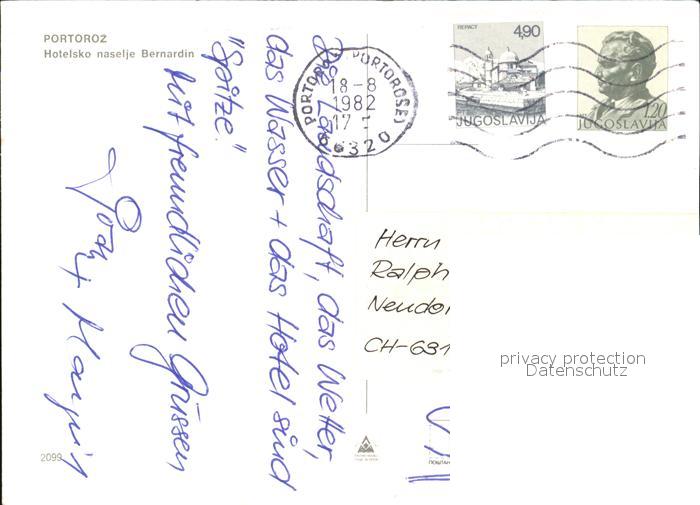 PORTOROŽ
Hotelsko naselje Bernardin
Die Landschaft, das Wetter,
das Wasser + das Hotel sind
"Spitze."
Mit freundlichen Grüssen
+ Margrit
PORTOROŽ PORTOROSE
18-8
1982
17-
6320
REPACT
4,90
JUGOSLAVIJA
1,20
JUGOSLAVIJA
Herrn
Ralph
CH-631
privacy protection
Datenschutz
2099